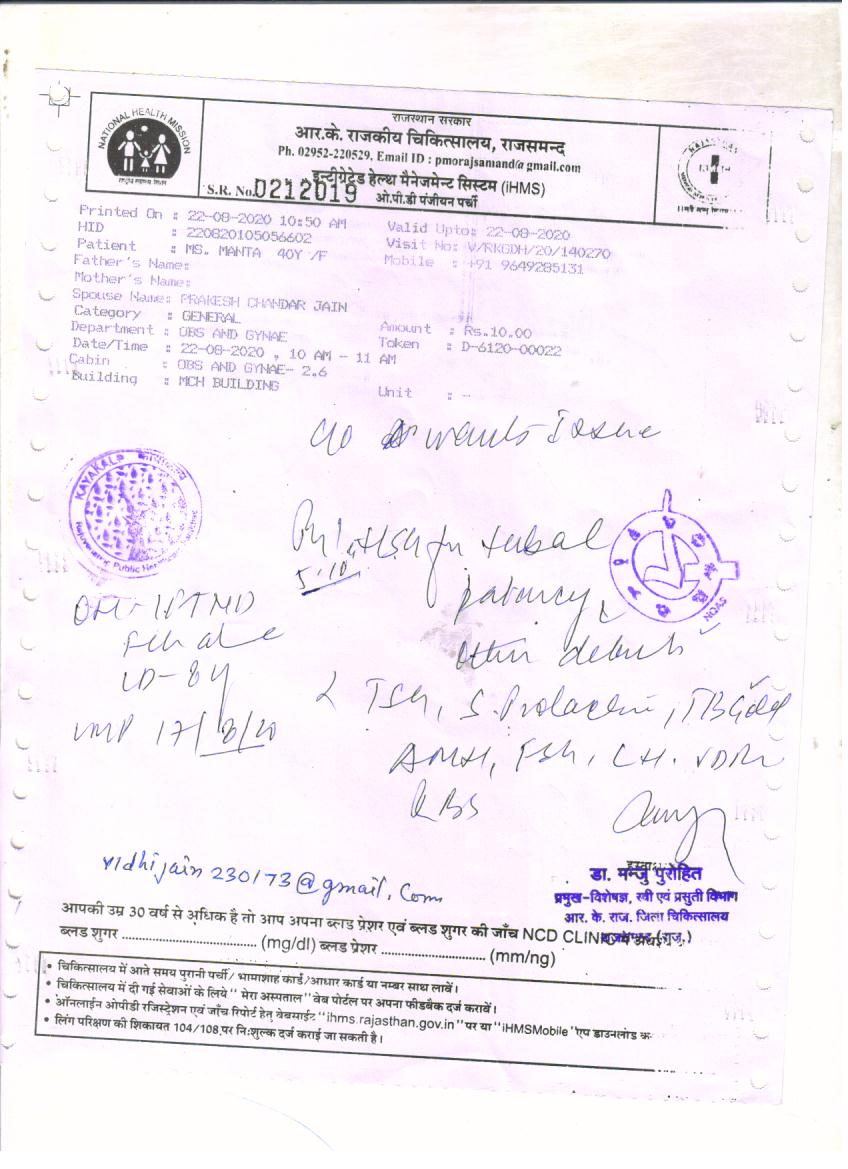 राजस्थान सरकार
आर.के. राजकीय चिकित्सालय, राजसमन्द
Ph. 02952-220529, Email ID : pmorajsamand@gmail.com
इन्टीग्रेटेड हेल्थ मैनेजमेन्ट सिस्टम (iHMS)
S.R. No. 0212019 ओ.पी.डी पंजीयन पर्ची
NATIONAL HEALTH MISSION
Printed On : 22-08-2020 10:50 AM Valid Upto: 22-08-2020
HID : 220820105056602 Visit No: V/RKGDH/20/140270
Patient : MS. MANTA 40Y /F Mobile : +91 9649285131
Father's Name:
Mother's Name:
Spouse Name: PRAKESH CHANDAR JAIN
Category : GENERAL Amount : Rs.10.00
Department : OBS AND GYNAE Token : D-6120-00022
Date/Time : 22-08-2020 , 10 AM - 11 AM
Cabin : OBS AND GYNAE- 2.6
Building : MCH BUILDING Unit : --
c/o wants Issue
KAYAKALP
for tubal
patency
TSH, S. Prolactin, TB Gold
AMH, FSH, LH, VDRL
RBS
LMP 17/8/20
vidhijain230173@gmail.com
डा. मन्जु पुरोहित
प्रमुख-विशेषज्ञ, स्त्री एवं प्रसुती विभाग
आर. के. राज. जिला चिकित्सालय
आपकी उम्र 30 वर्ष से अधिक है तो आप अपना ब्लड प्रेशर एवं ब्लड शुगर की जाँच NCD CLINIC
ब्लड शुगर .............................. (mg/dl) ब्लड प्रेशर .............................. (mm/ng)
• चिकित्सालय में आते समय पुरानी पर्ची/ भामाशाह कार्ड/आधार कार्ड या नम्बर साथ लावें।
• चिकित्सालय में दी गई सेवाओं के लिये " मेरा अस्पताल " वेब पोर्टल पर अपना फीडबैक दर्ज करावें।
• ऑनलाईन ओपीडी रजिस्ट्रेशन एवं जाँच रिपोर्ट हेतु वेबसाईट "ihms.rajasthan.gov.in" पर या "iHMSMobile" एप डाउनलोड
• लिंग परिक्षण की शिकायत 104/108,पर नि:शुल्क दर्ज कराई जा सकती है।